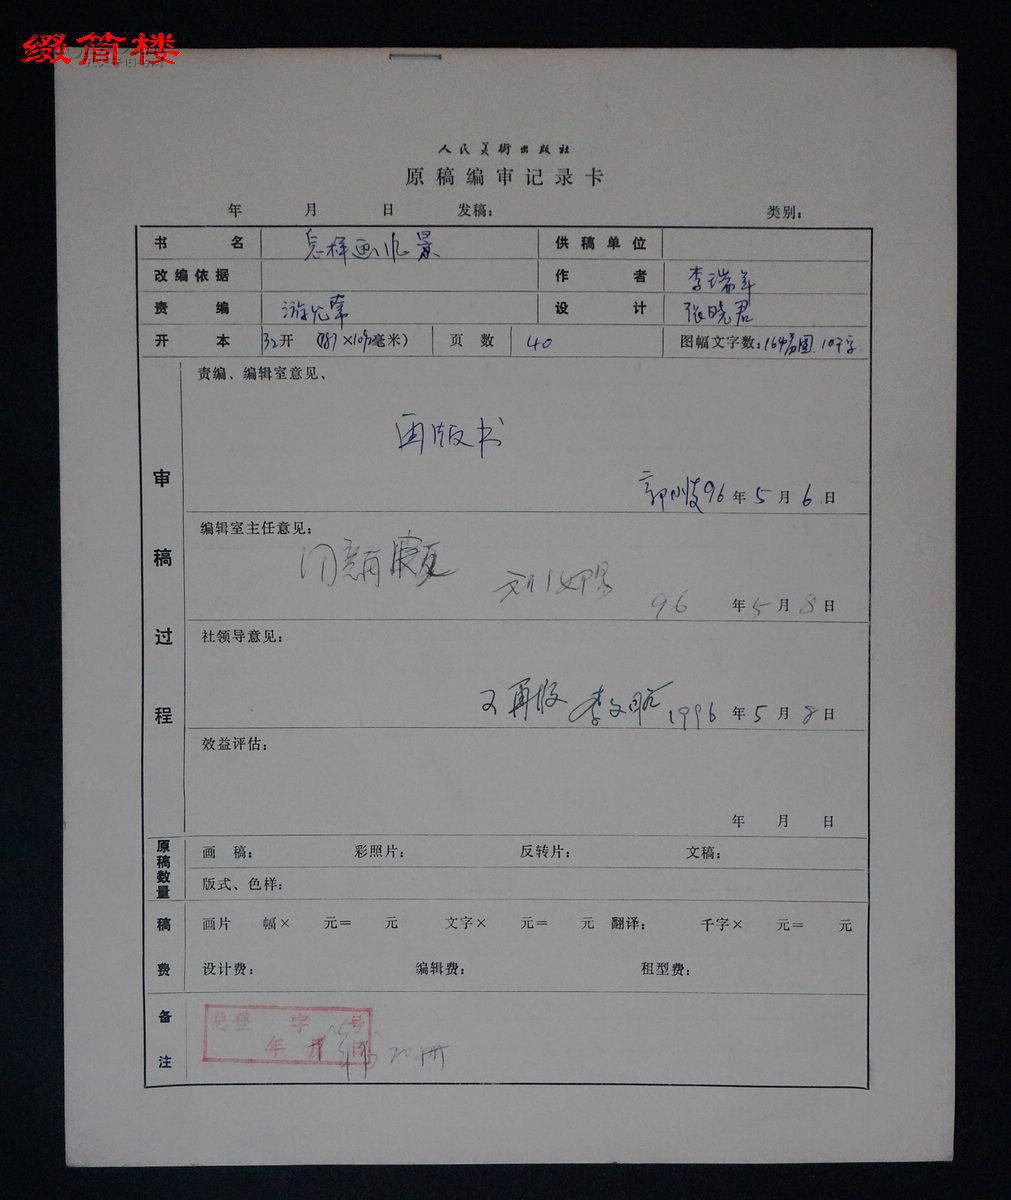 缀简楼
人民美术出版社
原稿编审记录卡
年 月 日 发稿: 类别:
书名 怎样画风景 供稿单位
改编依据 作者 李瑞年
责编 设计 张晓君
开本 32开 (787×1092毫米) 页数 40 图幅文字数: 164幅图 10千字
审稿过程
责编、编辑室意见、
再版书
96年5月6日
编辑室主任意见:
同意再版
96 年5月8日
社领导意见:
可再版 1996年5月8日
效益评估:
年 月 日
原稿数量
画稿: 彩照片: 反转片: 文稿:
版式、色样:
稿费
画片 幅× 元= 元 文字× 元= 元 翻译: 千字× 元= 元
设计费: 编辑费: 租型费:
备注
总登 字 号
年 月 日
20册